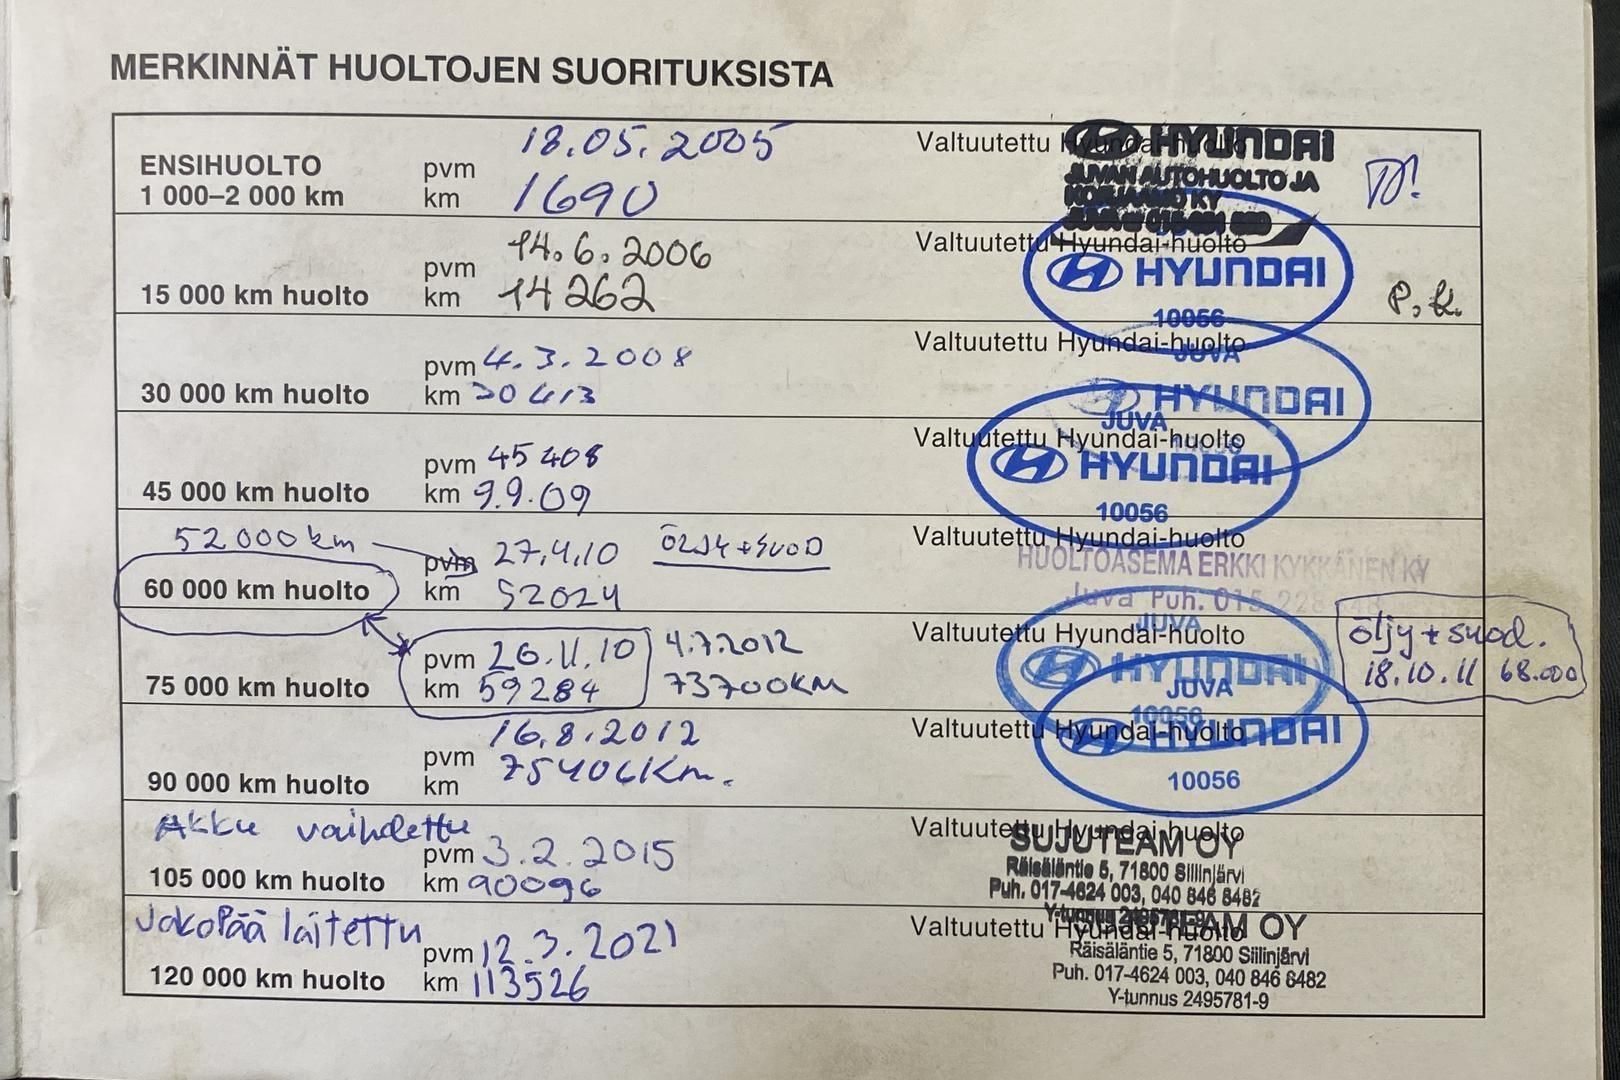 MERKINNÄT HUOLTOJEN SUORITUKSISTA
ENSIHUOLTO
1 000–2 000 km
pvm 18.05.2005
km 1690
Valtuutettu Hyundai-huolto
HYUNDAI
JUVAN AUTOHUOLTO JA
KORJAAMO KY
15 000 km huolto
pvm 14.6.2006
km 14262
Valtuutettu Hyundai-huolto
HYUNDAI
10056
P.K.
30 000 km huolto
pvm 4.3.2008
km 30413
Valtuutettu Hyundai-huolto
JUVA
HYUNDAI
45 000 km huolto
pvm 45408
km 9.9.09
Valtuutettu Hyundai-huolto
JUVA
HYUNDAI
10056
52000km
60 000 km huolto
pvm 27.4.10 ÖLJY+SUOD
km 52024
Valtuutettu Hyundai-huolto
HUOLTOASEMA ERKKI KYKKÄNEN KY
Juva Puh. 015
75 000 km huolto
pvm 26.11.10 4.7.2012
km 59284 73700KM
Valtuutettu Hyundai-huolto
JUVA
HYUNDAI
10056
öljy + suod.
18.10.11 68.000
90 000 km huolto
pvm 16.8.2012
km 75406Km.
Valtuutettu Hyundai-huolto
JUVA
HYUNDAI
10056
Akku vaihdettu
105 000 km huolto
pvm 3.2.2015
km 90096
Valtuutettu Hyundai-huolto
SUJUTEAM OY
Räisäläntie 5, 71800 Siilinjärvi
Puh. 017-4624 003, 040 846 8482
Y-tunnus 2495781-9
Jakopää laitettu
120 000 km huolto
pvm 12.3.2021
km 113526
Valtuutettu Hyundai-huolto
SUJUTEAM OY
Räisäläntie 5, 71800 Siilinjärvi
Puh. 017-4624 003, 040 846 8482
Y-tunnus 2495781-9